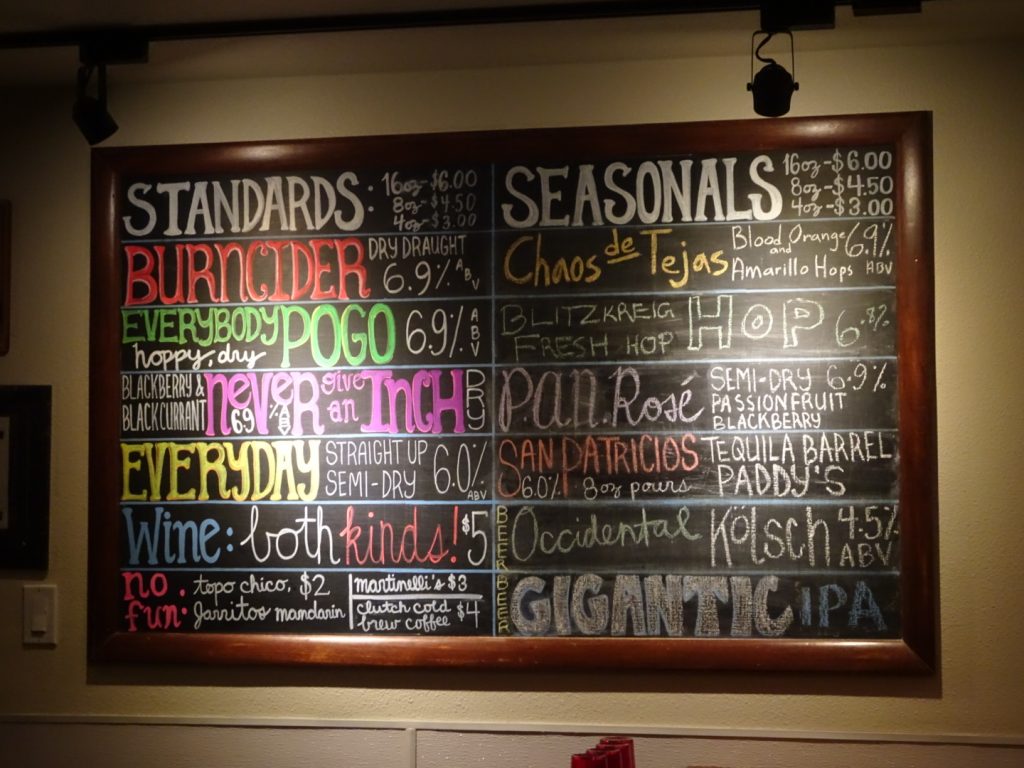 STANDARDS: 16oz-$6.00
8oz-$4.50
4oz-$3.00
BURNCIDER DRY DRAUGHT
6.9% ABV
EVERYBODY POGO 6.9% ABV
hoppy, dry
BLACKBERRY & NEVER give INCH DRY
BLACKCURRANT 6.9% an
EVERYDAY STRAIGHT UP 6.0%
SEMI-DRY ABV
Wine: both kinds! $5
no topo chico, $2 martinelli's $3
fun: Jarritos mandarin clutch cold
brew coffee $4
SEASONALS 16oz-$6.00
8oz-$4.50
4oz-$3.00
Chaos de Tejas Blood Orange 6.9%
and
Amarillo Hops ABV
BLITZKREIG HOP 6.8%
FRESH HOP
P.A.N. Rosé SEMI-DRY 6.9%
PASSIONFRUIT
BLACKBERRY
SAN PATRICIOS TEQUILA BARREL
6.0% 8oz pours PADDY'S
BEER Occidental Kölsch 4.5%
ABV
BEER GIGANTIC IPA